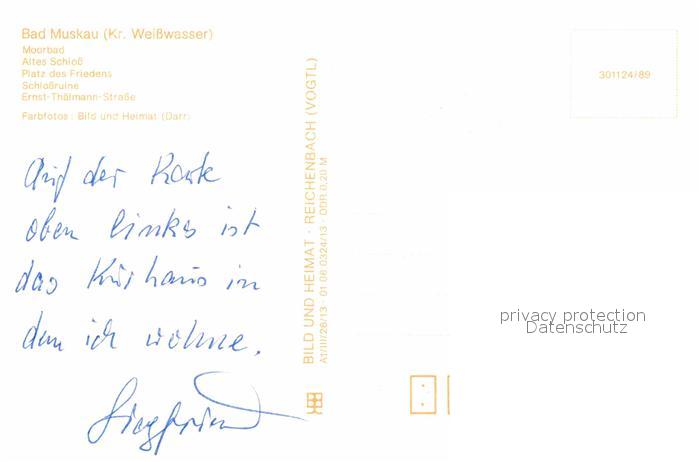 Bad Muskau (Kr. Weißwasser)
Moorbad
Altes Schloß
Platz des Friedens
Schloßruine
Ernst-Thälmann-Straße
Farbfotos: Bild und Heimat (Darr)
Auf der Karte
oben links ist
das Kurhaus in
dem ich wohne.
Siegfried
BILD UND HEIMAT · REICHENBACH (VOGTL)
A1/III/26/13 · 01 06 0324/13 · DDR 0,20 M
301124/89
privacy protection
Datenschutz